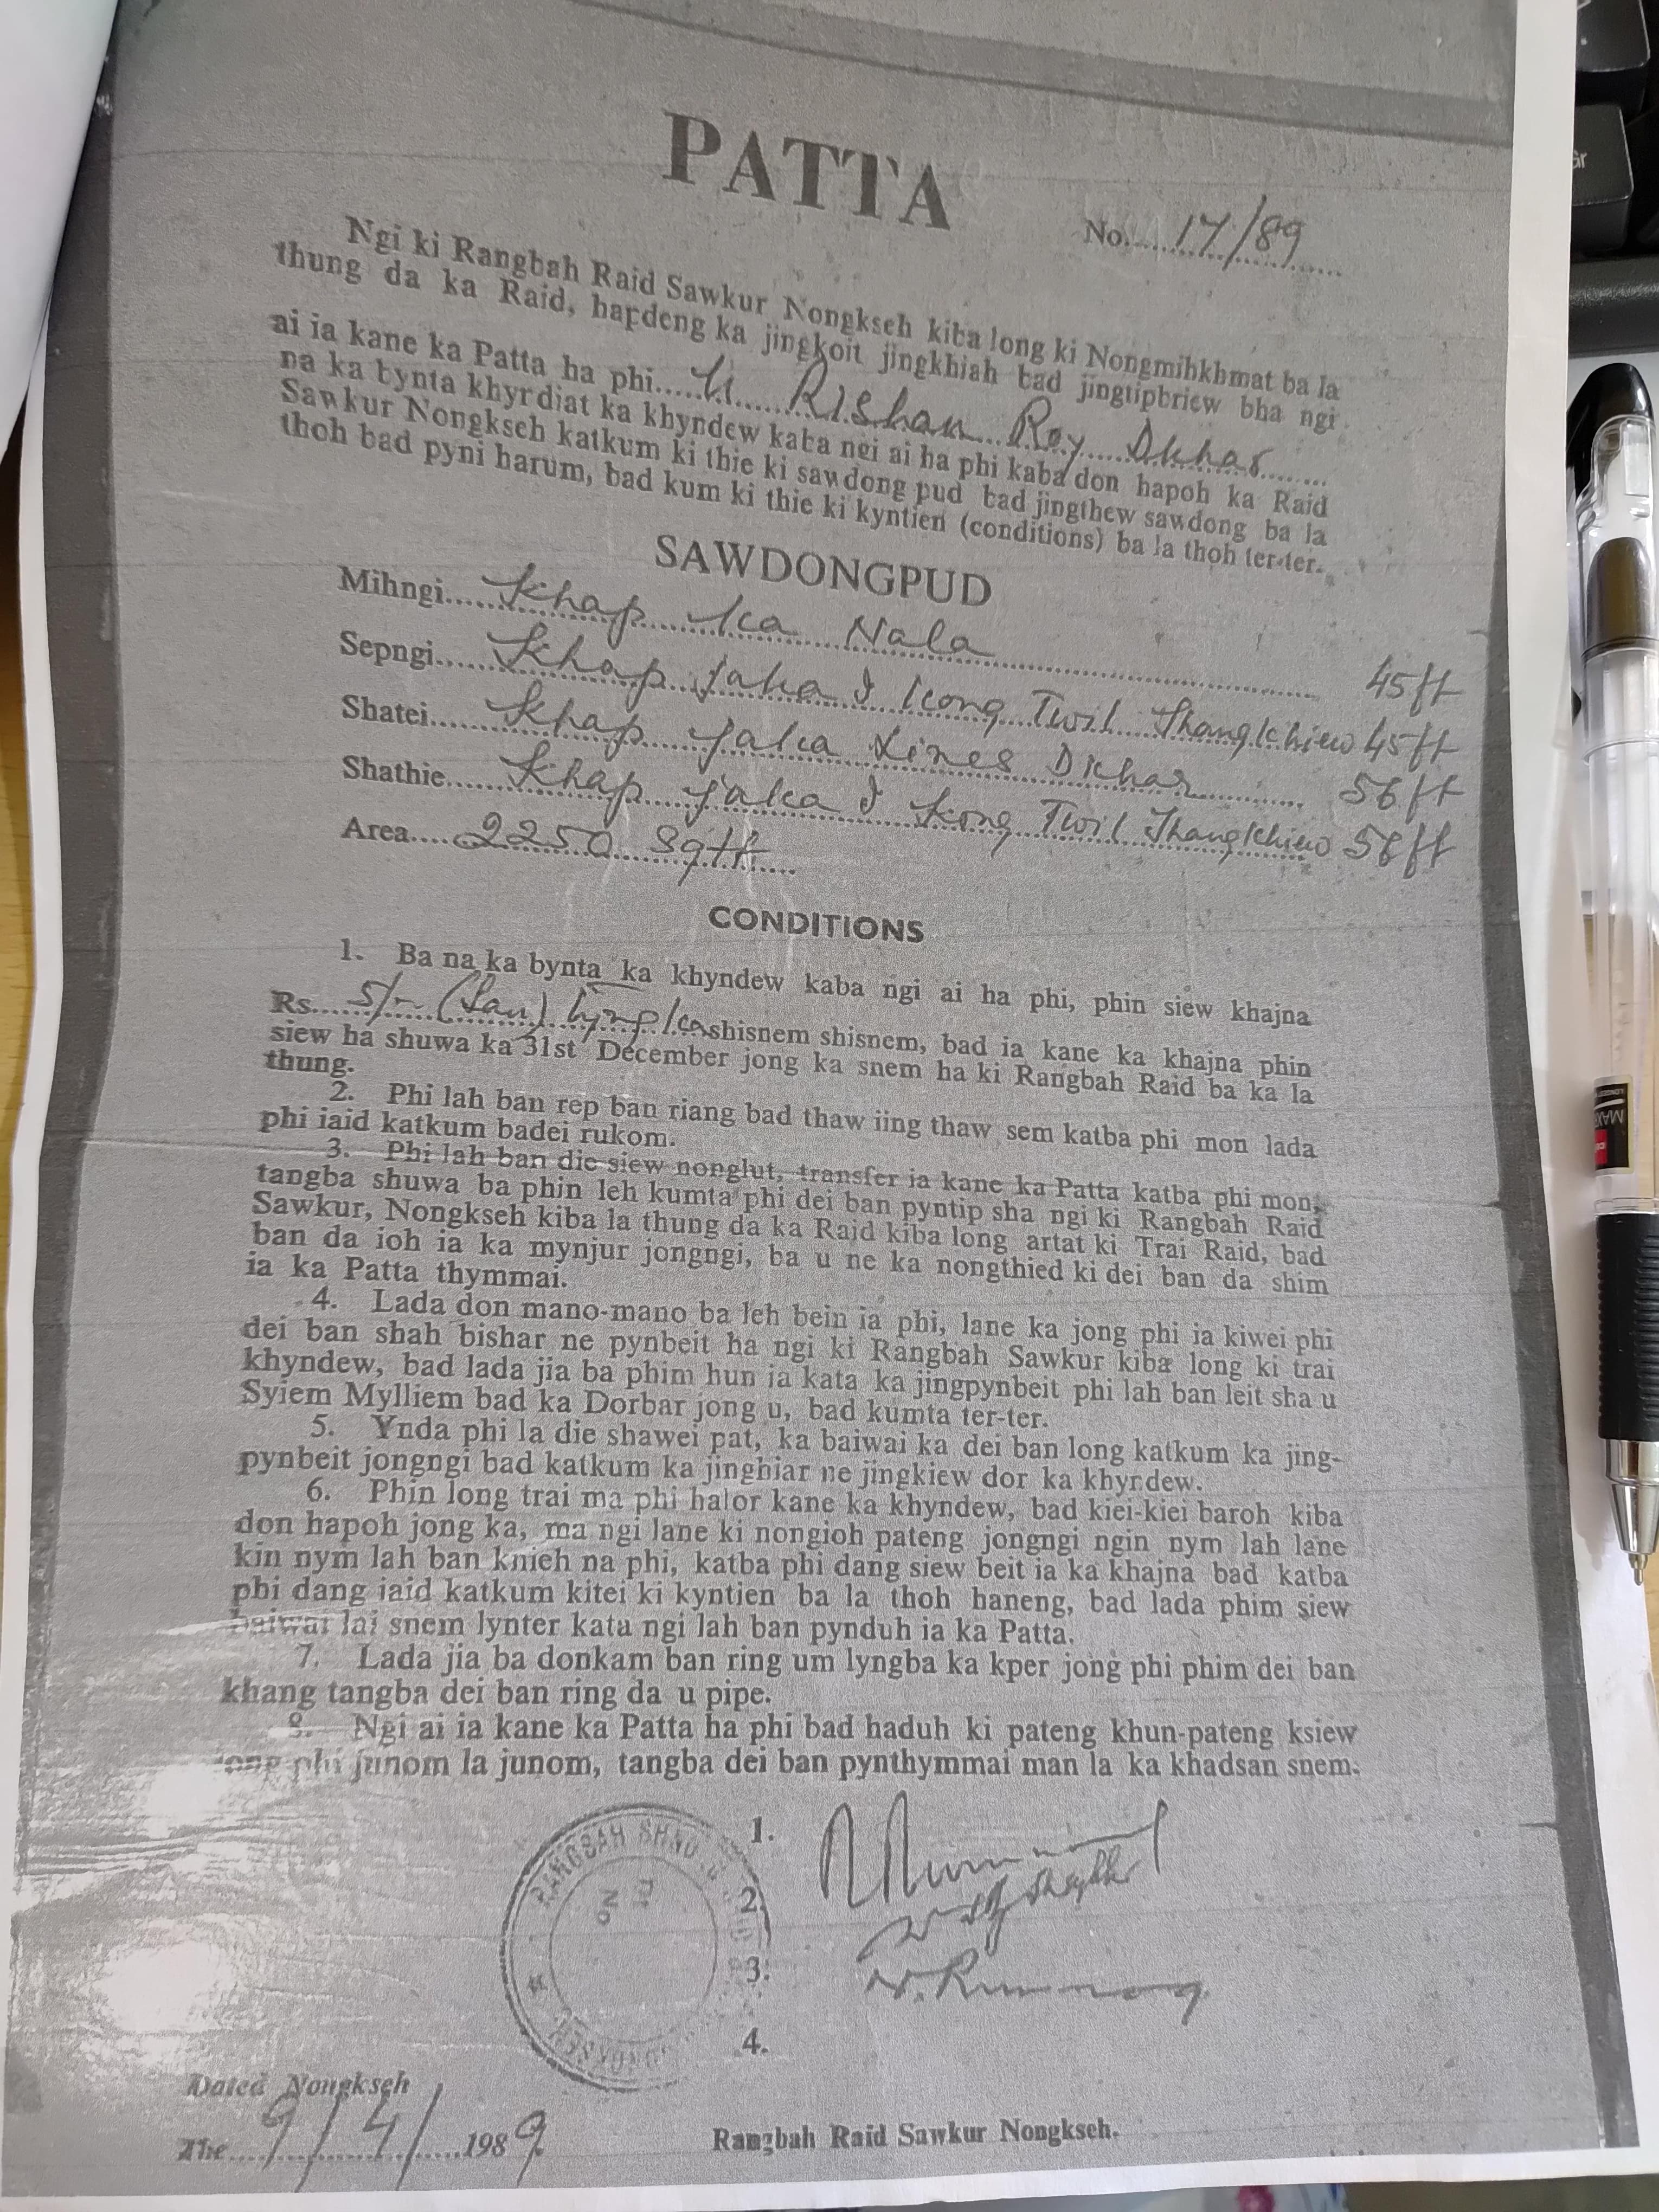 PATTA
No. 17/89
Ngi ki Rangbah Raid Sawkur Nongkseh kiba long ki Nongmihkhmat ba la
thung da ka Raid, hapdeng ka jingkoit jingkhiah bad jingtipbriew bha ngi
ai ia kane ka Patta ha phi....U Rishan Roy Dkhar
na ka bynta khyrdiat ka khyndew kaba ngi ai ha phi kaba don hapoh ka Raid
Sawkur Nongkseh katkum ki thie ki sawdong pud bad jingthew sawdong ba la
thoh bad pyni harum, bad kum ki thie ki kyntien (conditions) ba la thoh ter-ter.
SAWDONGPUD
Mihngi....Khap ka Nala 45 ft
Sepngi....Khap jaka I Kong Twil Thangkhiew 45 ft
Shatei....Khap jaka Lines Dkhar 56 ft
Shathie....Khap jaka I Kong Twil Thangkhiew 56 ft
Area....2250 Sqft
CONDITIONS
1. Ba na ka bynta ka khyndew kaba ngi ai ha phi, phin siew khajna
Rs....5/- (San) tyngka shisnem shisnem, bad ia kane ka khajna phin
siew ha shuwa ka 31st December jong ka snem ha ki Rangbah Raid ba ka la
thung.
2. Phi lah ban rep ban riang bad thaw iing thaw sem katba phi mon lada
phi iaid katkum badei rukom.
3. Phi lah ban die siew nonglut, transfer ia kane ka Patta katba phi mon,
tangba shuwa ba phin leh kumta phi dei ban pyntip sha ngi ki Rangbah Raid
Sawkur, Nongkseh kiba la thung da ka Raid kiba long artat ki Trai Raid, bad
ban da ioh ia ka mynjur jongngi, ba u ne ka nongthied ki dei ban da shim
ia ka Patta thymmai.
4. Lada don mano-mano ba leh bein ia phi, lane ka jong phi ia kiwei phi
dei ban shah bishar ne pynbeit ha ngi ki Rangbah Sawkur kiba long ki trai
khyndew, bad lada jia ba phim hun ia kata ka jingpynbeit phi lah ban leit sha u
Syiem Mylliem bad ka Dorbar jong u, bad kumta ter-ter.
5. Ynda phi la die shawei pat, ka baiwai ka dei ban long katkum ka jing-
pynbeit jongngi bad katkum ka jinghiar ne jingkiew dor ka khyrdew.
6. Phin long trai ma phi halor kane ka khyndew, bad kiei-kiei baroh kiba
don hapoh jong ka, ma ngi lane ki nongioh pateng jongngi ngin nym lah lane
kin nym lah ban knieh na phi, katba phi dang siew beit ia ka khajna bad katba
phi dang iaid katkum kitei ki kyntien ba la thoh haneng, bad lada phim siew
baiwai lai snem lynter kata ngi lah ban pynduh ia ka Patta.
7. Lada jia ba donkam ban ring um lyngba ka kper jong phi phim dei ban
khang tangba dei ban ring da u pipe.
8. Ngi ai ia kane ka Patta ha phi bad haduh ki pateng khun-pateng ksiew
jong phi junom la junom, tangba dei ban pynthymmai man la ka khadsan snem.
RANGBAH SHNO
Dt
No
NONGKSEH
1.
2.
3.
4.
Dated Nongkseh
The 9/4/1989
Rangbah Raid Sawkur Nongkseh.